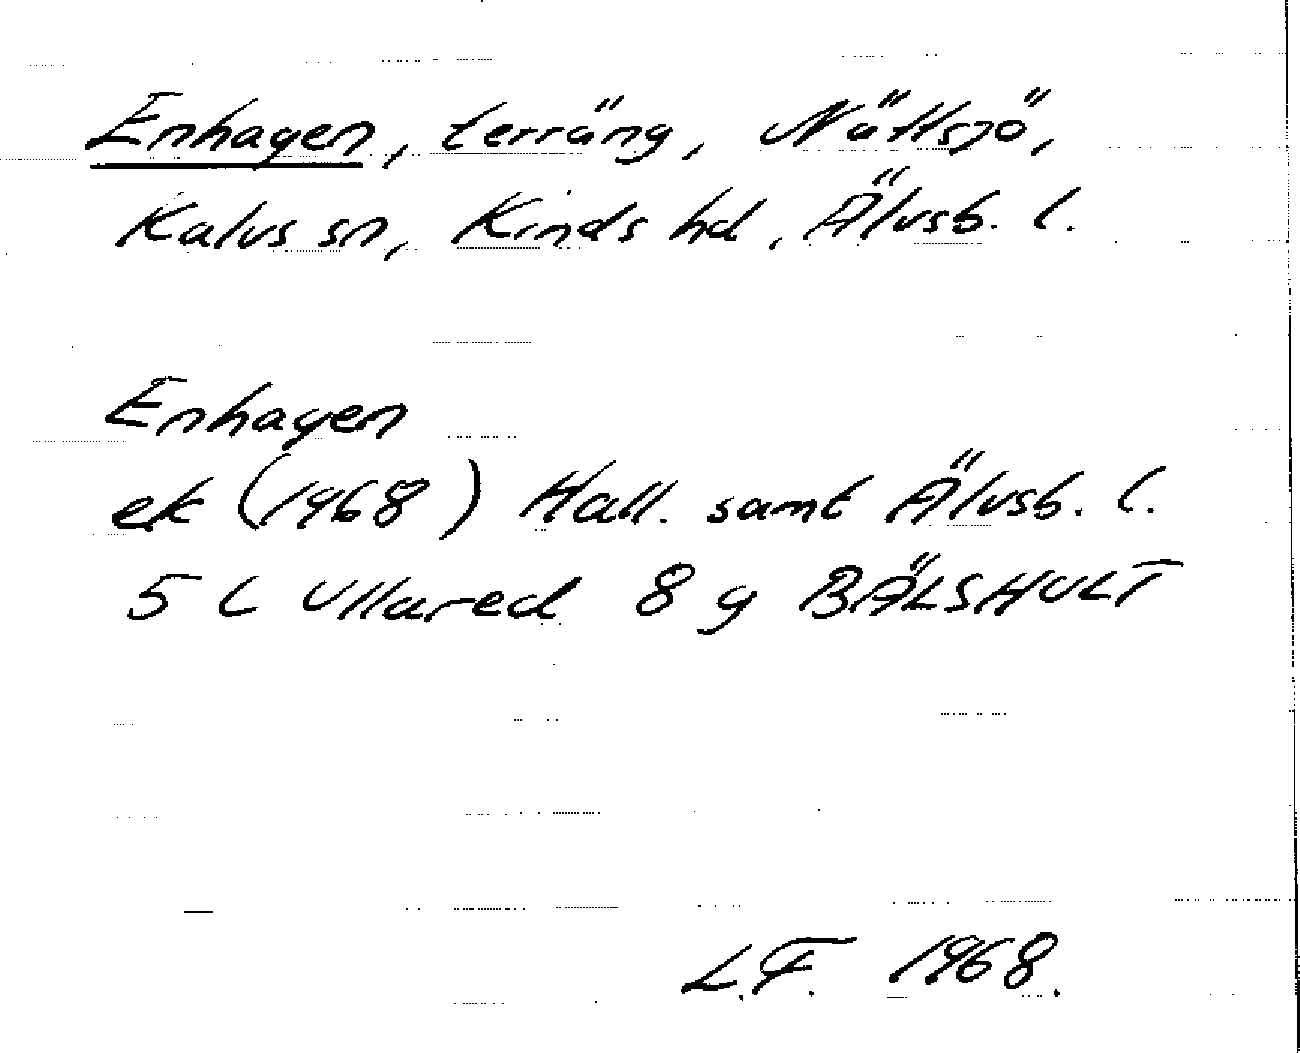 Enhagen, terräng, Nättsjö,
Kalvs sn, Kinds hd, Älvsb. l.
Enhagen
ek (1968) Hall. samt Älvsb. l.
5 C Ullared 8 g BÄLSHULT
L.F. 1968.